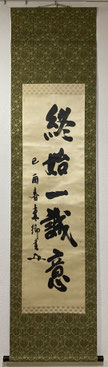 終始一誠意
己酉春